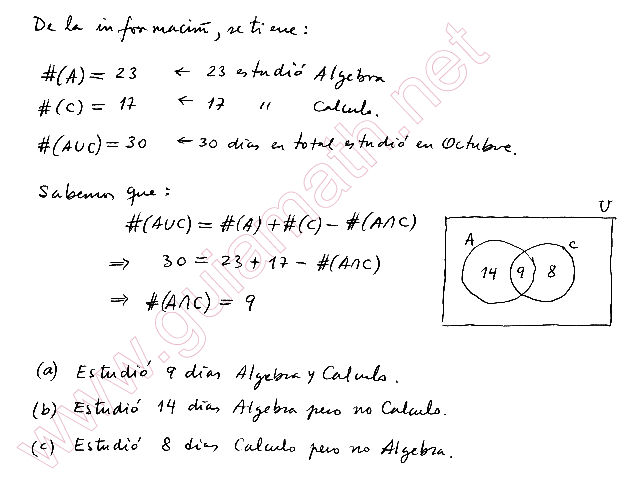 De la información, se tiene:
#(A) = 23 ← 23 estudió Algebra
#(C) = 17 ← 17 " Calculo.
#(A∪C) = 30 ← 30 dias en total estudió en Octubre.
Sabemos que:
#(A∪C) = #(A) + #(C) - #(A∩C)
⇒ 30 = 23 + 17 - #(A∩C)
⇒ #(A∩C) = 9
U
A C
14 9 8
(a) Estudió 9 dias Algebra y Calculo.
(b) Estudió 14 dias Algebra pero no Calculo.
(c) Estudió 8 dias Calculo pero no Algebra.
www.guiamath.net